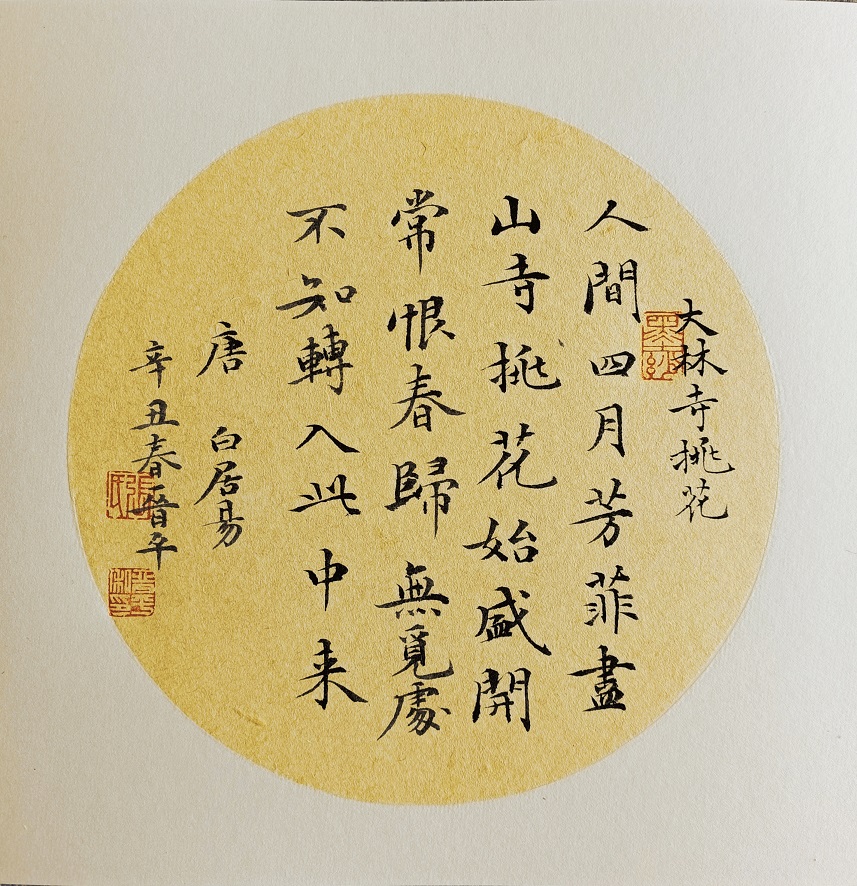 大林寺桃花
人間四月芳菲盡
山寺桃花始盛開
常恨春歸無覓處
不知轉入此中来
唐 白居易
辛丑春晉平